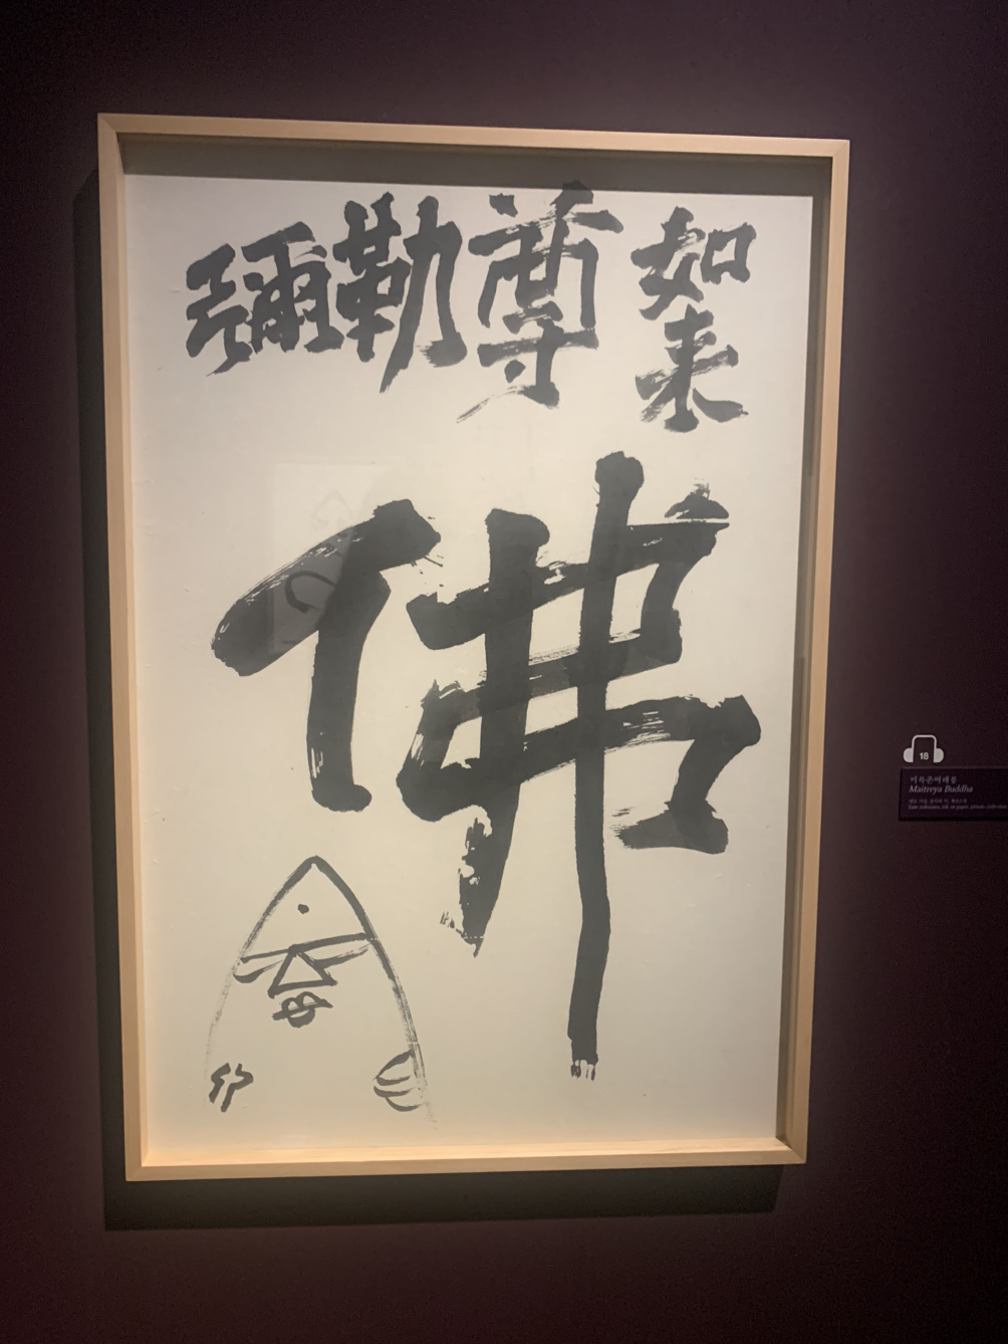 彌勒尊如来
佛
18
미륵존여래불
Maitreya Buddha